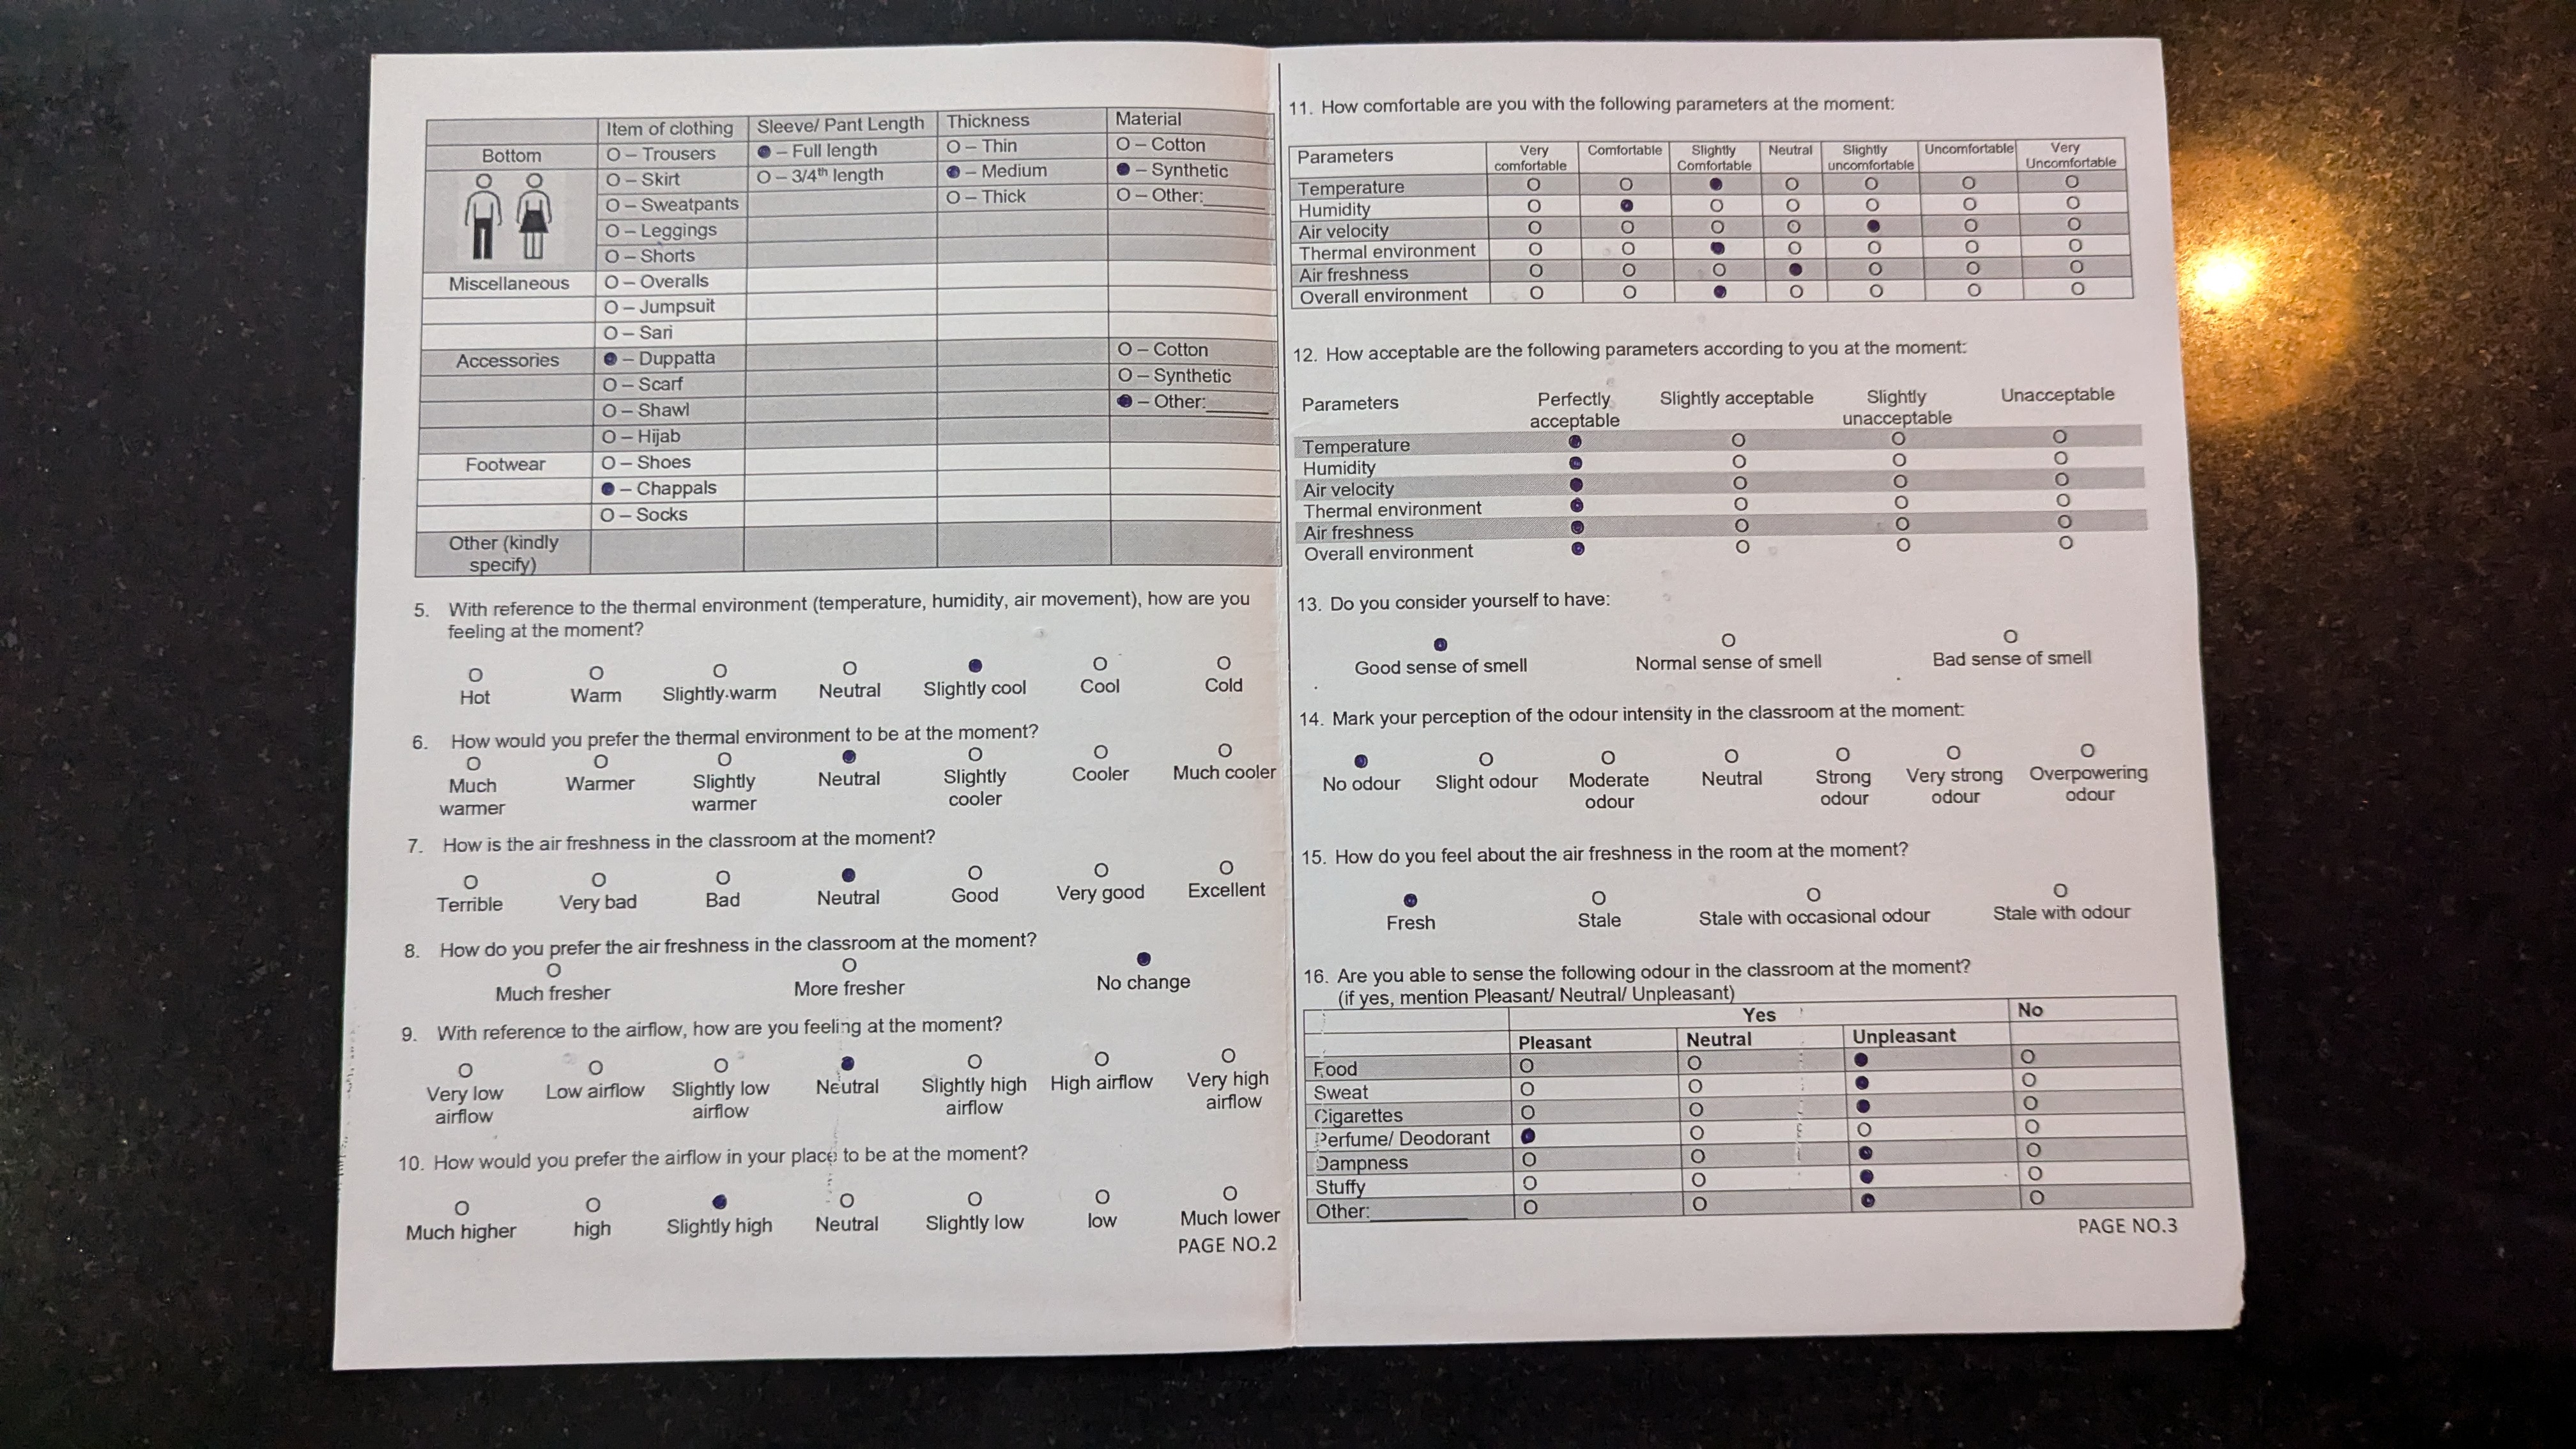 Item of clothing Sleeve/ Pant Length Thickness Material
Bottom O – Trousers ● – Full length O – Thin O – Cotton
O – Skirt O – 3/4th length ● – Medium ● – Synthetic
O – Sweatpants O – Thick O – Other:______
O – Leggings
O – Shorts
Miscellaneous O – Overalls
O – Jumpsuit
O – Sari
Accessories ● – Duppatta O – Cotton
O – Scarf O – Synthetic
O – Shawl ● – Other:______
O – Hijab
Footwear O – Shoes
● – Chappals
O – Socks
Other (kindly
specify)
5. With reference to the thermal environment (temperature, humidity, air movement), how are you
feeling at the moment?
O O O O ● O O
Hot Warm Slightly warm Neutral Slightly cool Cool Cold
6. How would you prefer the thermal environment to be at the moment?
O O O ● O O O
Much Warmer Slightly Neutral Slightly Cooler Much cooler
warmer warmer cooler
7. How is the air freshness in the classroom at the moment?
O O O ● O O O
Terrible Very bad Bad Neutral Good Very good Excellent
8. How do you prefer the air freshness in the classroom at the moment?
O O ●
Much fresher More fresher No change
9. With reference to the airflow, how are you feeling at the moment?
O O O ● O O O
Very low Low airflow Slightly low Neutral Slightly high High airflow Very high
airflow airflow airflow airflow
10. How would you prefer the airflow in your place to be at the moment?
O O ● O O O O
Much higher high Slightly high Neutral Slightly low low Much lower
PAGE NO.2
11. How comfortable are you with the following parameters at the moment:
Parameters Very Comfortable Slightly Neutral Slightly Uncomfortable Very
comfortable Comfortable uncomfortable Uncomfortable
Temperature O O ● O O O O
Humidity O ● O O O O O
Air velocity O O O O ● O O
Thermal environment O O ● O O O O
Air freshness O O O ● O O O
Overall environment O O ● O O O O
12. How acceptable are the following parameters according to you at the moment:
Parameters Perfectly Slightly acceptable Slightly Unacceptable
acceptable unacceptable
Temperature ● O O O
Humidity ● O O O
Air velocity ● O O O
Thermal environment ● O O O
Air freshness ● O O O
Overall environment ● O O O
13. Do you consider yourself to have:
● O O
Good sense of smell Normal sense of smell Bad sense of smell
14. Mark your perception of the odour intensity in the classroom at the moment:
● O O O O O O
No odour Slight odour Moderate Neutral Strong Very strong Overpowering
odour odour odour odour
15. How do you feel about the air freshness in the room at the moment?
● O O O
Fresh Stale Stale with occasional odour Stale with odour
16. Are you able to sense the following odour in the classroom at the moment?
(if yes, mention Pleasant/ Neutral/ Unpleasant)
Yes No
Pleasant Neutral Unpleasant
Food O O ● O
Sweat O O ● O
Cigarettes O O ● O
Perfume/ Deodorant ● O O O
Dampness O O ● O
Stuffy O O ● O
Other:__________ O O ● O
PAGE NO.3